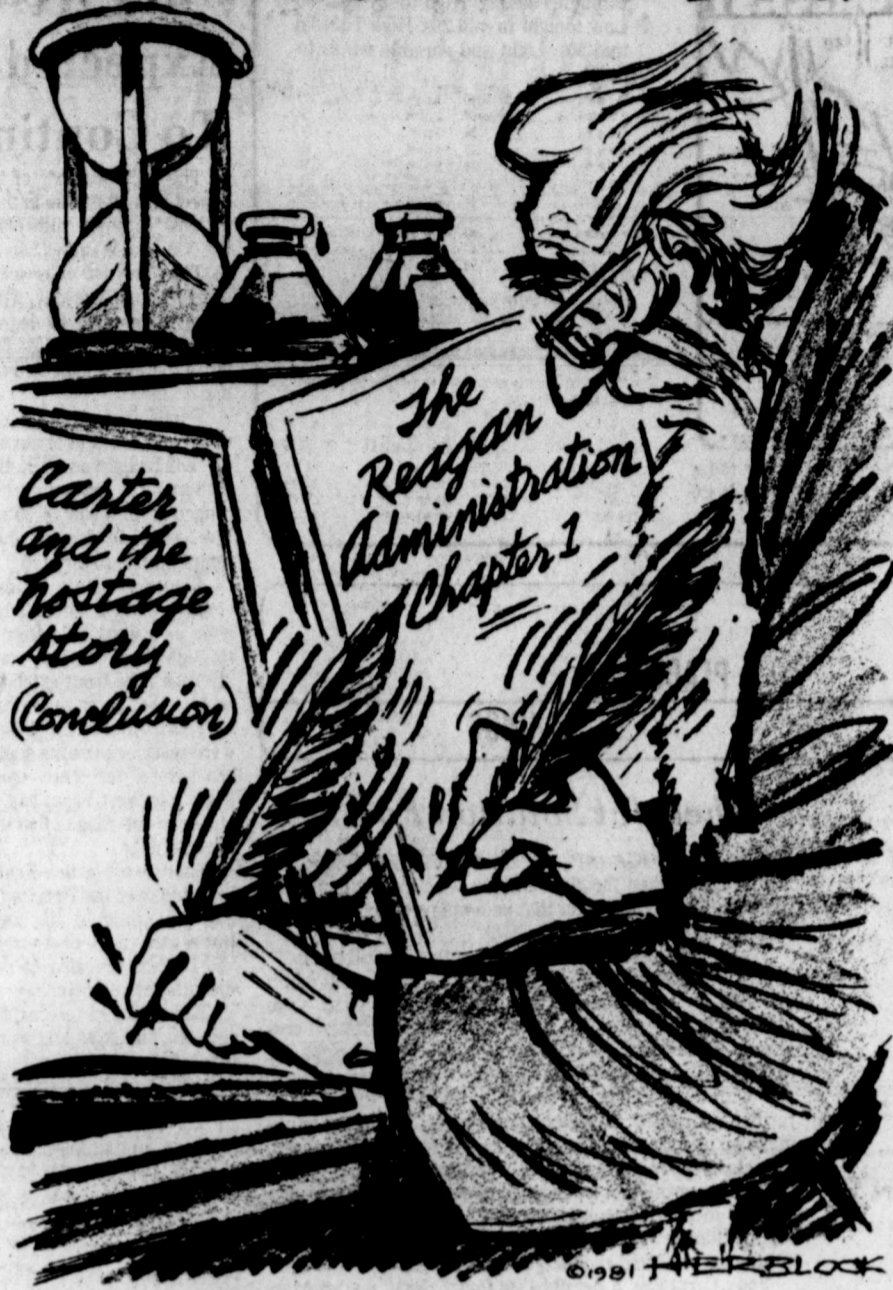 Carter
and the
hostage
story
(Conclusion)
The
Reagan
Administration
Chapter 1
©1981 HERBLOCK